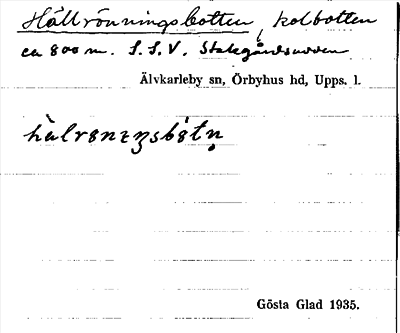 Hällrönningsbotten, kolbotten
ca 800 m. S.S.V. Stakgårdsudden
Älvkarleby sn, Örbyhus hd, Upps. l.
Gösta Glad 1935.